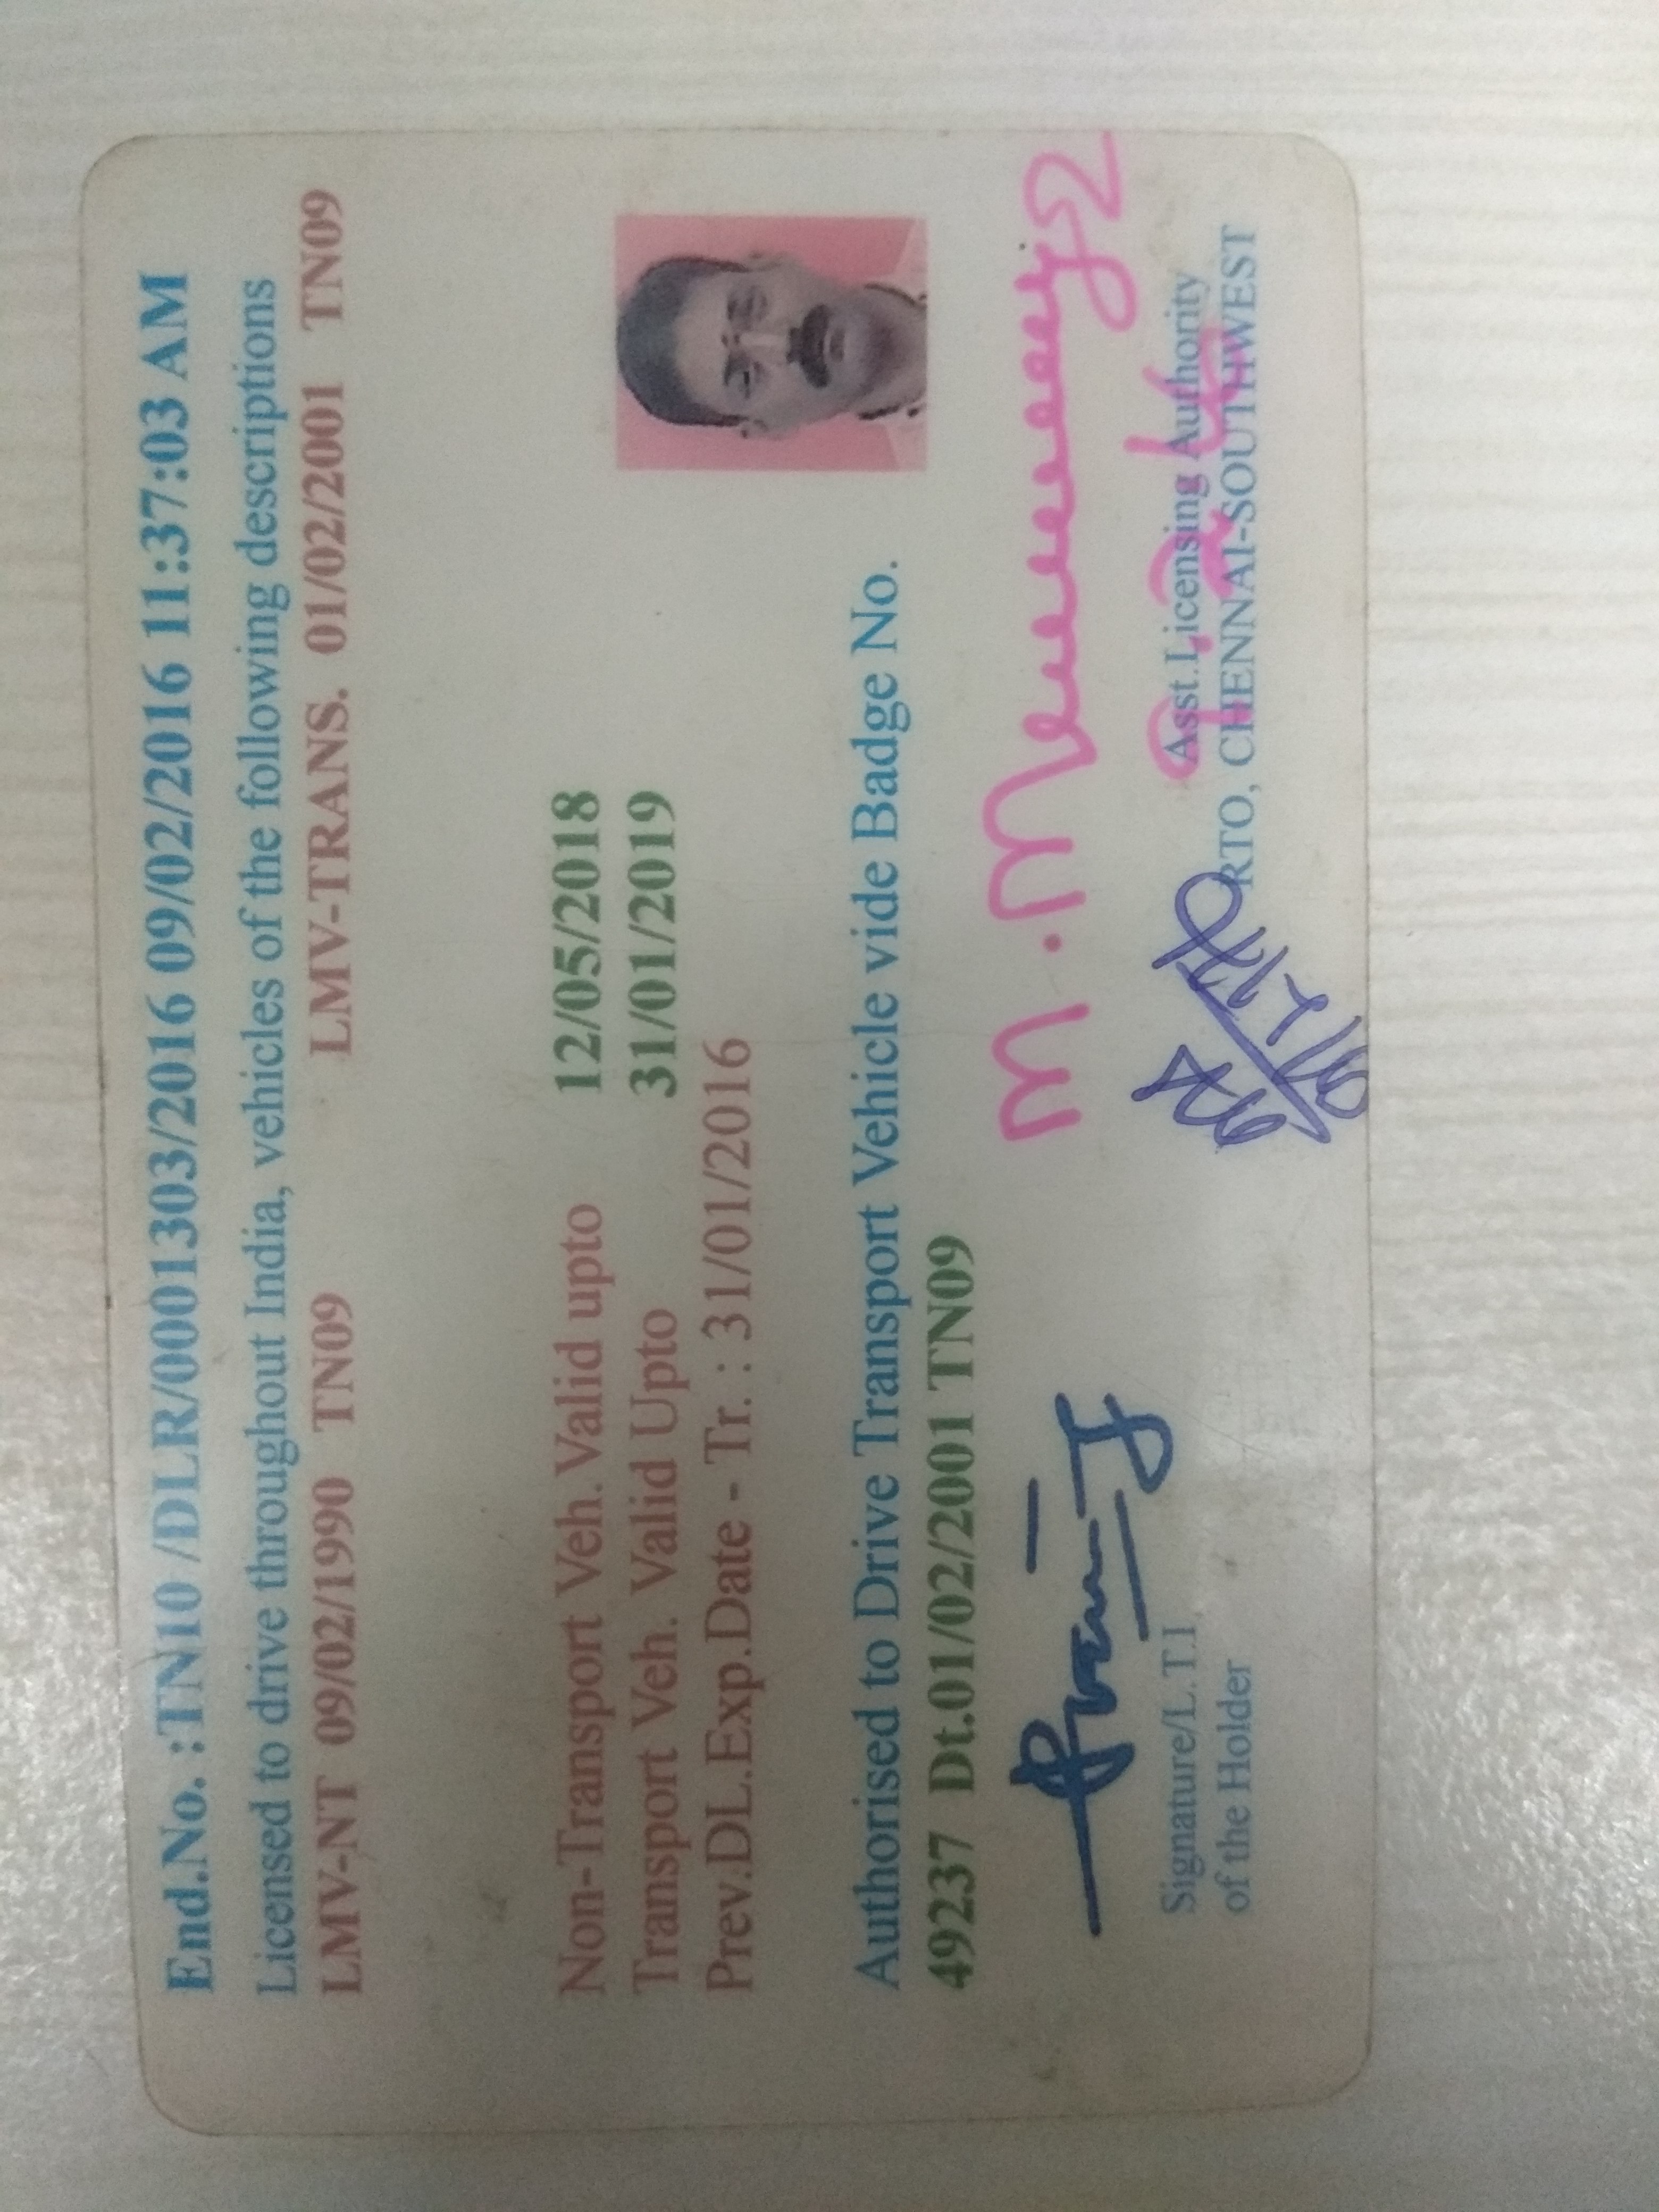 End.No. :TN10 /DLR/0001303/2016 09/02/2016 11:37:03 AM
Licensed to drive throughout India, vehicles of the following descriptions
LMV-NT 09/02/1990 TN09 LMV-TRANS. 01/02/2001 TN09
Non-Transport Veh.Valid upto 12/05/2018
Transport Veh. Valid Upto 31/01/2019
Prev.DL.Exp.Date - Tr. : 31/01/2016
Authorised to Drive Transport Vehicle vide Badge No.
49237 Dt.01/02/2001 TN09
Signature/L.T.I
of the Holder
Asst.Licensing Authority
RTO, CHENNAI-SOUTHWEST